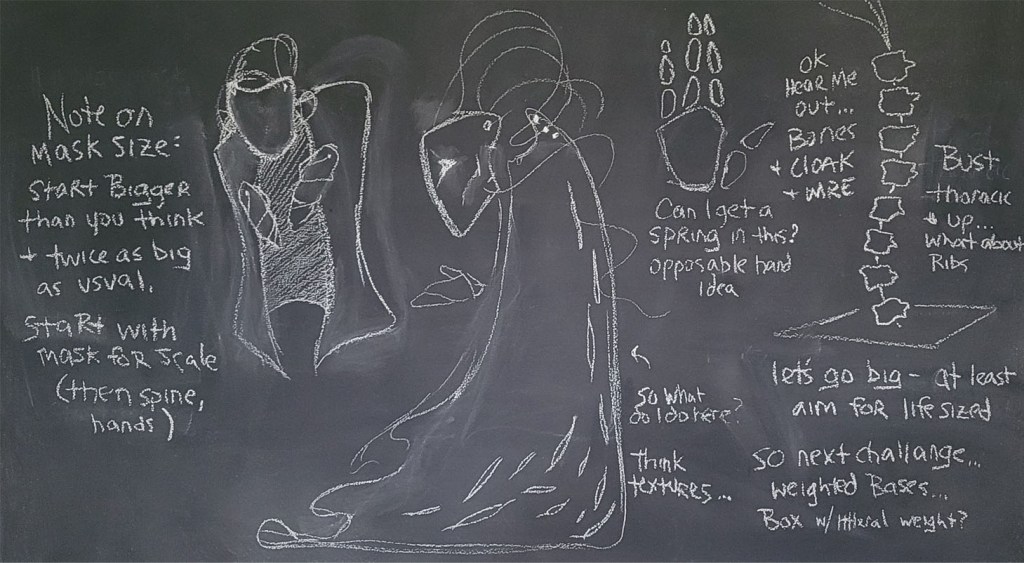 Note on
Mask Size:
Start Bigger
than you think
+ twice as big
as usual.
Start with
mask for scale
(then spine,
hands)
Can I get a
spring in this?
opposable hand
idea
ok
Hear Me
out...
Bones
+ CLOAK
+ WIRE
Bust,
thoracic
& up...
what about
Ribs
let's go big - at least
aim for life sized
so what
do I do here?
Think
textures...
So next challange...
weighted Bases...
Box w/literal weight?